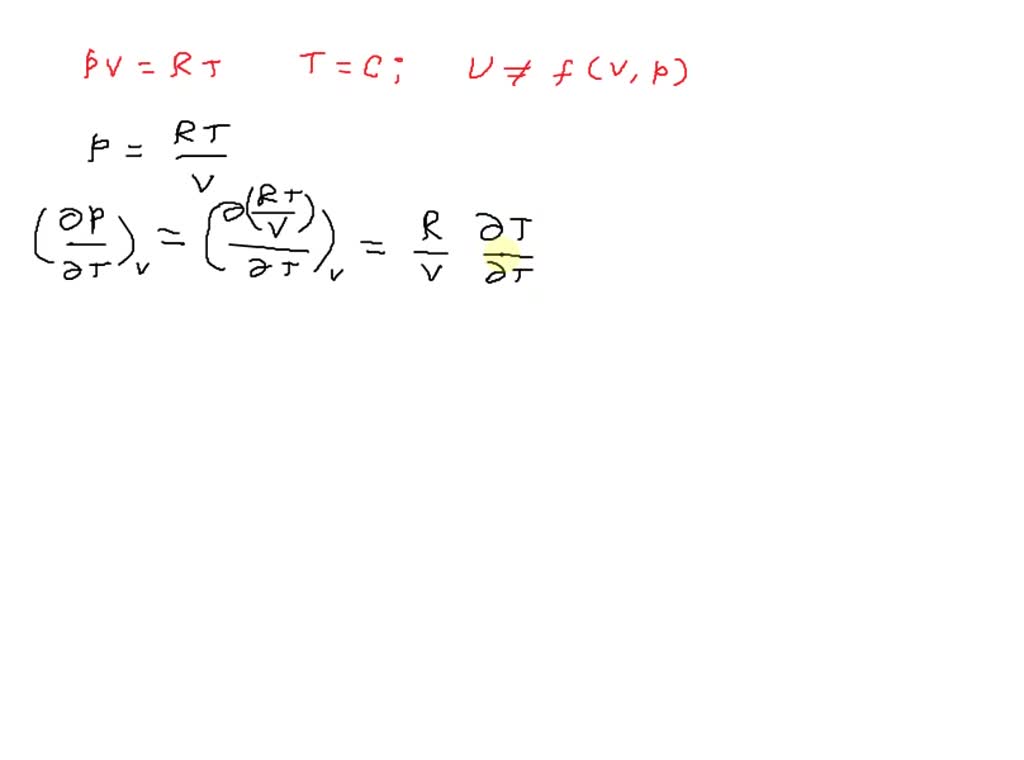 pV = RT    T = C;    U ≠ f(V, p)
p = RT/V
(∂P/∂T)_V = (∂(RT/V)/∂T)_V = R/V ∂T/∂T